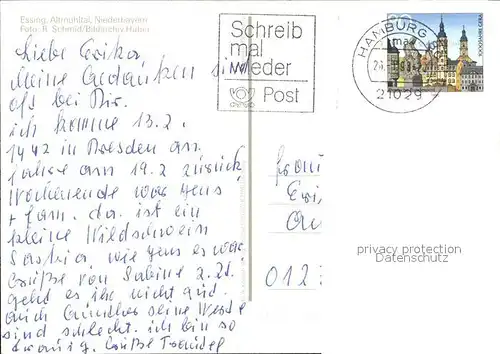 Essing, Altmühltal, Niederbayern
Foto: R. Schmid/Bildarchiv Huber
Schreib
mal
wieder
Post
HAMBURG
21029
1000 JAHRE GERA
Liebe Erika
Meine Gedanken sind
oft bei Dir.
ich komme 13.2.
1442 in Dresden an.
fahre am 19.2 zurück
Wochenende war Jens
+ Fam. da. ist ein
kleine Wildschwein
Saskia wie Jens es war
Grüße von Sabine z.Zt.
geht es ihr nicht gut.
auch Günther seine Werte
sind schlecht. ich bin so
traurig. Grüße Traudel
Frau
012
privacy protection
Datenschutz